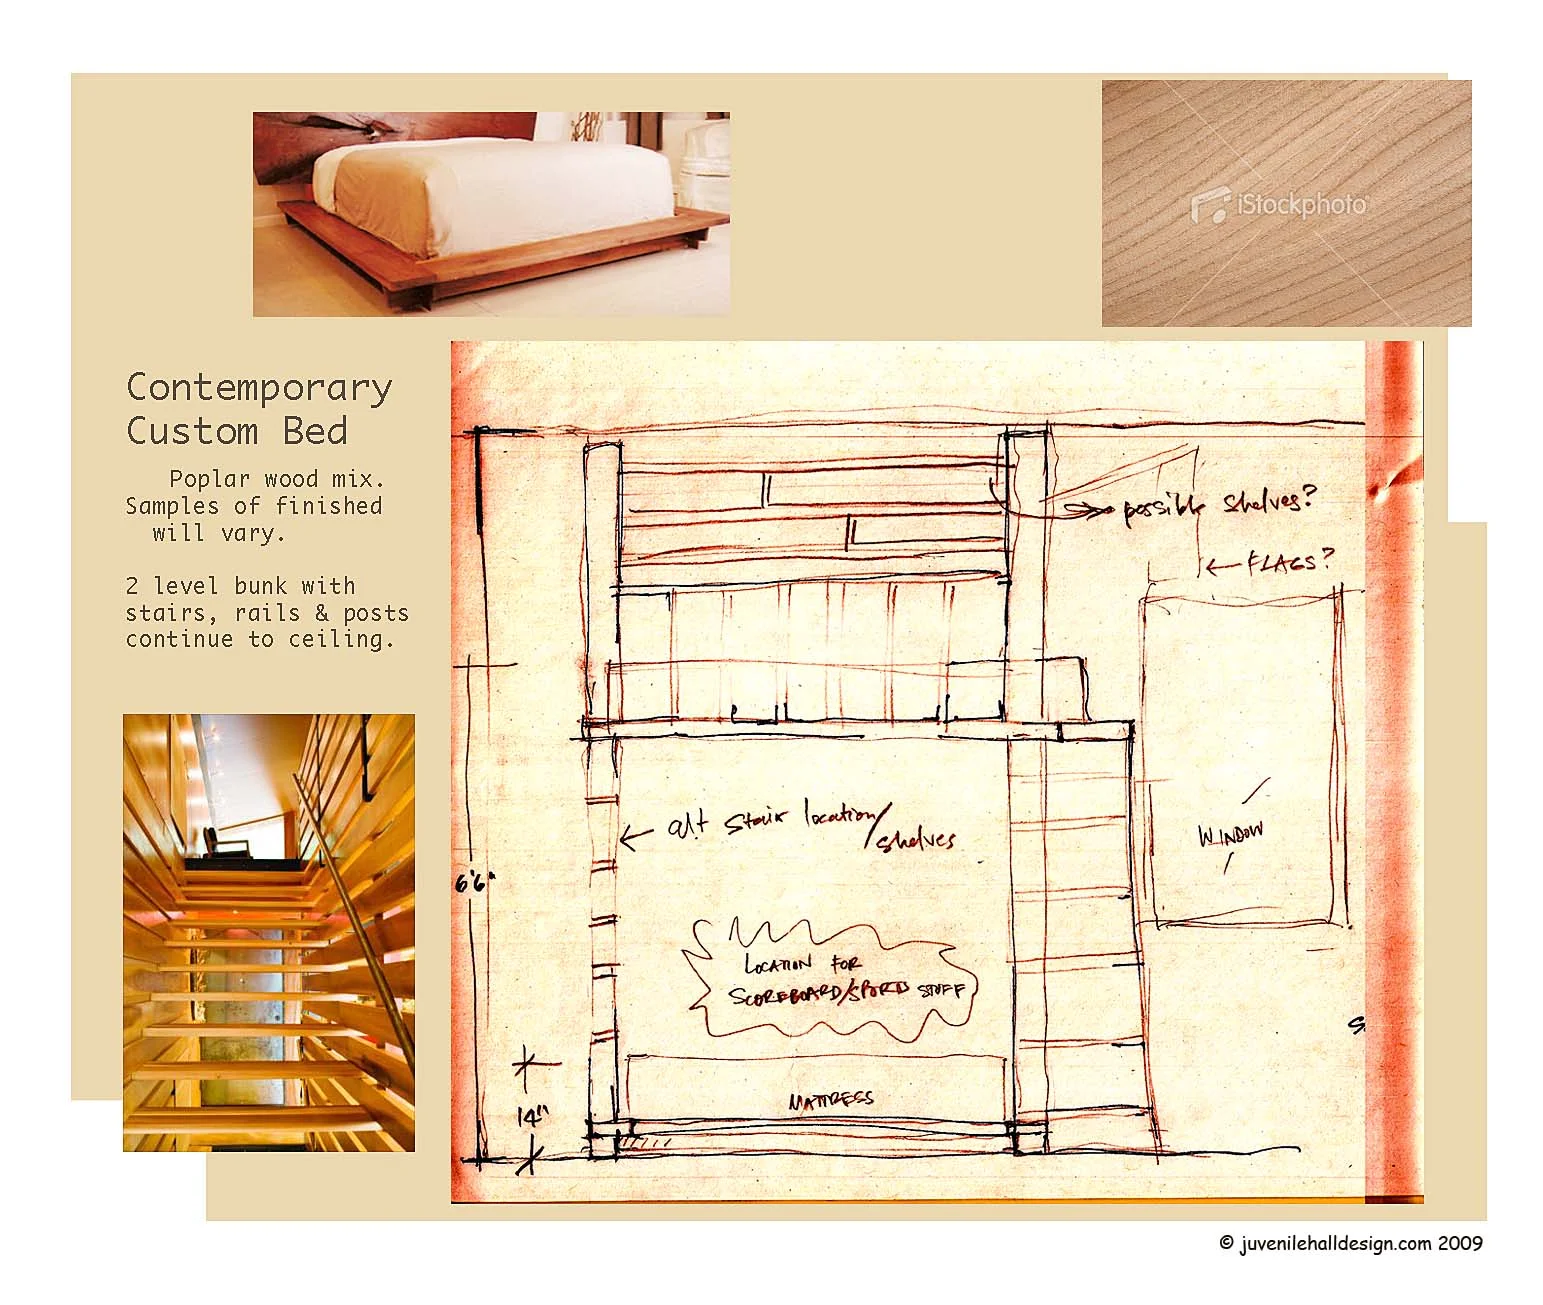 iStockphoto
Contemporary
Custom Bed
Poplar wood mix.
Samples of finished
will vary.
2 level bunk with
stairs, rails & posts
continue to ceiling.
possible shelves?
← FLAGS?
WINDOW
← alt stair location/
shelves
6'6"
LOCATION FOR
SCOREBOARD/SPORTS STUFF
S
MATTRESS
14"
© juvenilehalldesign.com 2009